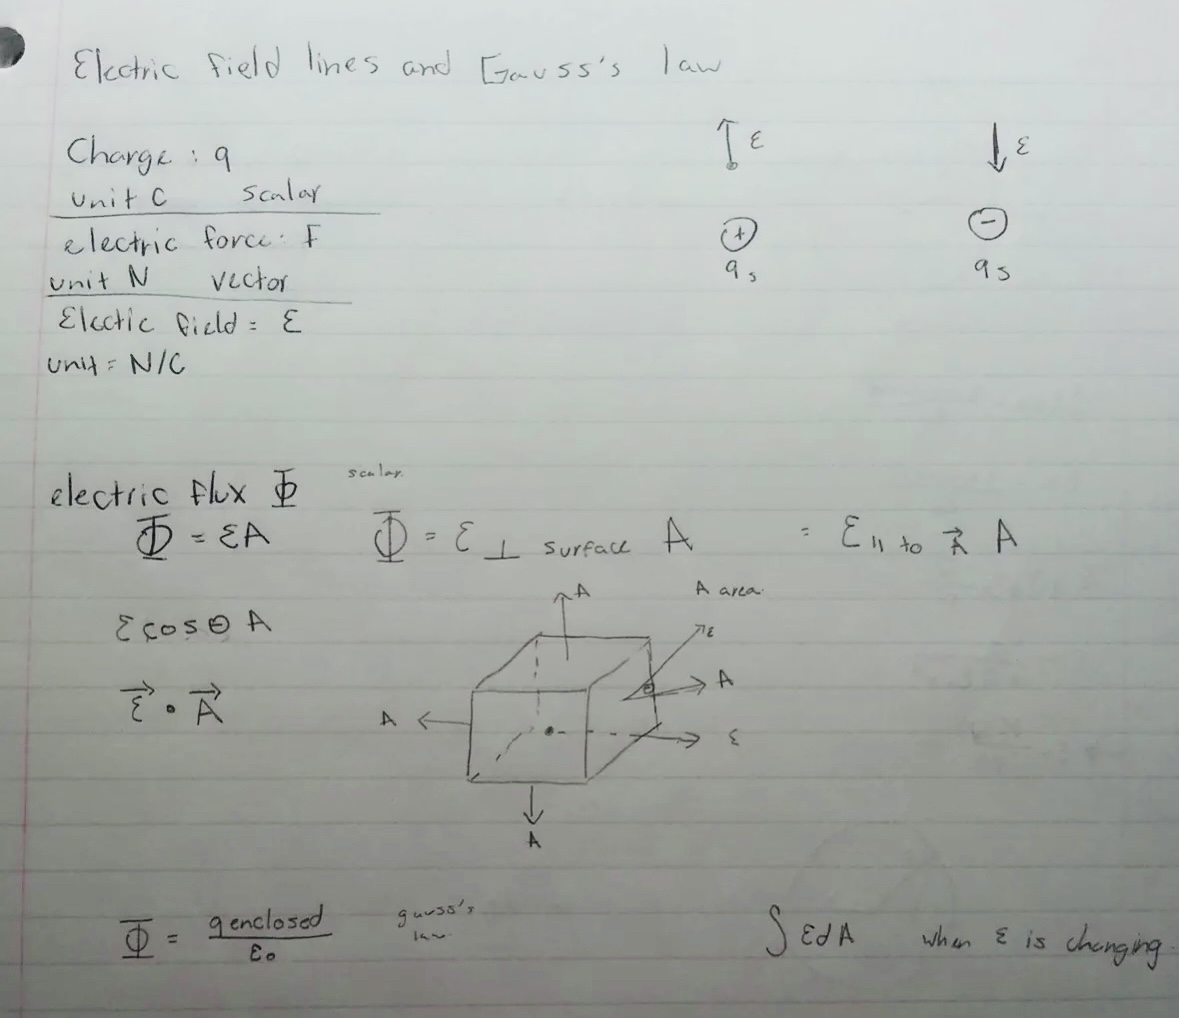 Electric field lines and Gauss's law
Charge : q
unit C scalar
electric force: F
unit N vector
Elcctic field = ε
unit = N/C
ε
ε
+
−
qs
qs
electric flux Φ scalar.
Φ = εA Φ = ε ⊥ surface A = ε || to A⃗ A
ε cos θ A
ε⃗ • A⃗
A
A area.
ε
A
A
ε
A
Φ = q enclosed / ε₀ gauss's law
∫ εdA when ε is changing